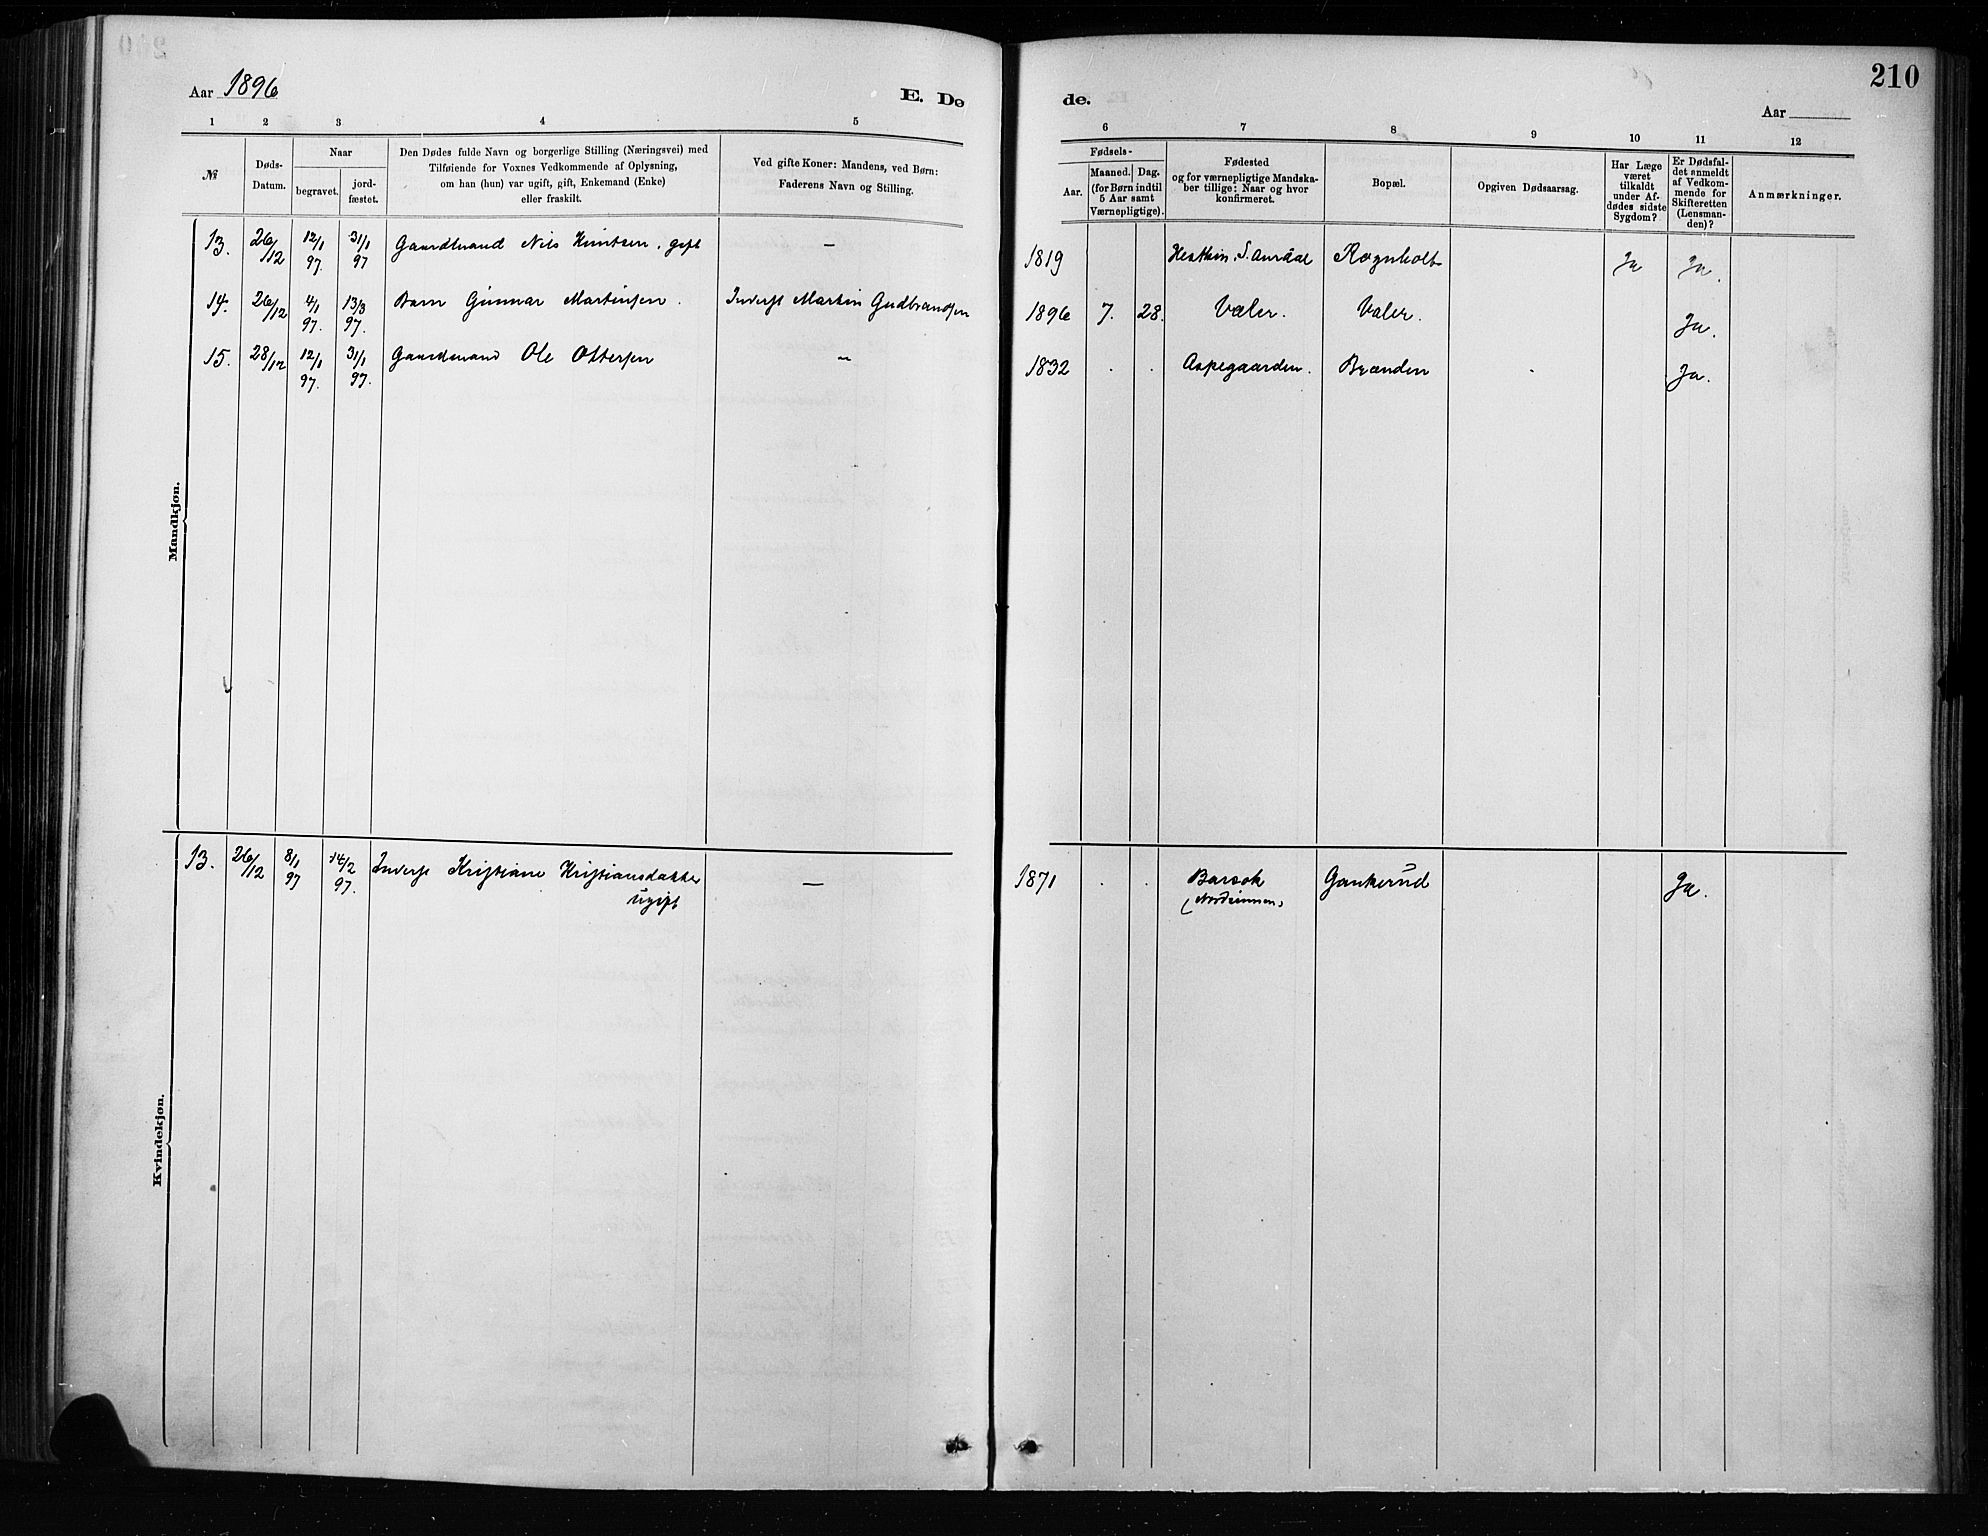 210
Aar 1896
E. Dø
de.
Aar
1 2 3 4 5
6 7 8 9 10 11 12
№
Døds-
Datum.
Naar
begravet.
jord-
fæstet.
Den Dødes fulde Navn og borgerlige Stilling (Næringsvei) med
Tilføiende for Voxnes Vedkommende af Oplysning,
om han (hun) var ugift, gift, Enkemand (Enke)
eller fraskilt.
Ved gifte Koner: Mandens, ved Børn:
Faderens Navn og Stilling.
Fødsels-
Aar.
Maaned. Dag.
(for Børn indtil
5 Aar samt
Værnepligtige).
Fødested
og for værnepligtige Mandska-
ber tillige: Naar og hvor
konfirmeret.
Bopæl.
Opgiven Dødsaarsag.
Har Læge
været
tilkaldt
under Af-
dødes sidste
Sygdom?
Er Dødsfal-
det anmeldt
af Vedkom-
mende for
Skifteretten
(Lensman-
den)?
Anmærkninger.
Mandkjøn.
13. 26/12 12/1 97. 31/1 97 Gaardmand Nils Knutsen, gift — 1819 S. Aurdal Rognholt Ja Ja.
14. 26/12 4/1 97. 13/3 97. Barn Gunnar Martinsen. Inderst Martin Gudbrandsen 1896 7. 28. Valer. Valer. Ja.
15. 28/12 12/1 97. 31/1 97. Gaardmand Ole Ottersen — 1832 . . Aspegaarden. Brænden . Ja.
Kvindekjøn.
13. 26/12 8/1 97 14/2 97. Inderst Kristiane Kristiansdatter — 1871 . . Gankerud Ja.
ugift